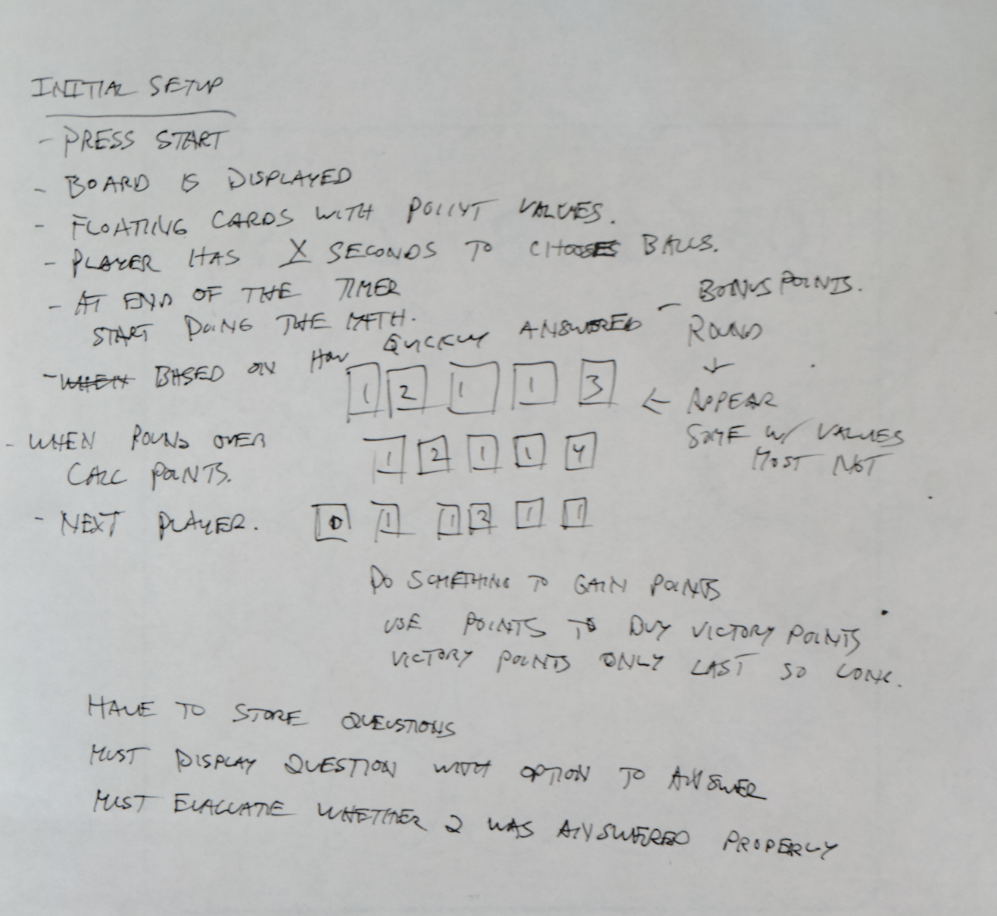 INITIAL SETUP
- PRESS START
- BOARD IS DISPLAYED
- FLOATING CARDS WITH POINT VALUES.
- PLAYER HAS X SECONDS TO CHOOSE BALLS.
- AT END OF THE TIMER
START DOING THE MATH.
- WHEN BASED ON HOW QUICKLY ANSWERED - BONUS POINTS.
ROUND
↓
1 2 1 1 3 ← APPEAR
SOME W/ VALUES
MOST NOT
- WHEN ROUND OVER
CALC POINTS.
1 2 1 1 4
- NEXT PLAYER.
0 1 1 2 1 1
DO SOMETHING TO GAIN POINTS
USE POINTS TO BUY VICTORY POINTS
VICTORY POINTS ONLY LAST SO LONG.
HAVE TO STORE QUEUSTIONS
MUST DISPLAY QUESTION WITH OPTION TO ANSWER
MUST EVALUATE WHETHER Q WAS ANSWERED PROPERLY